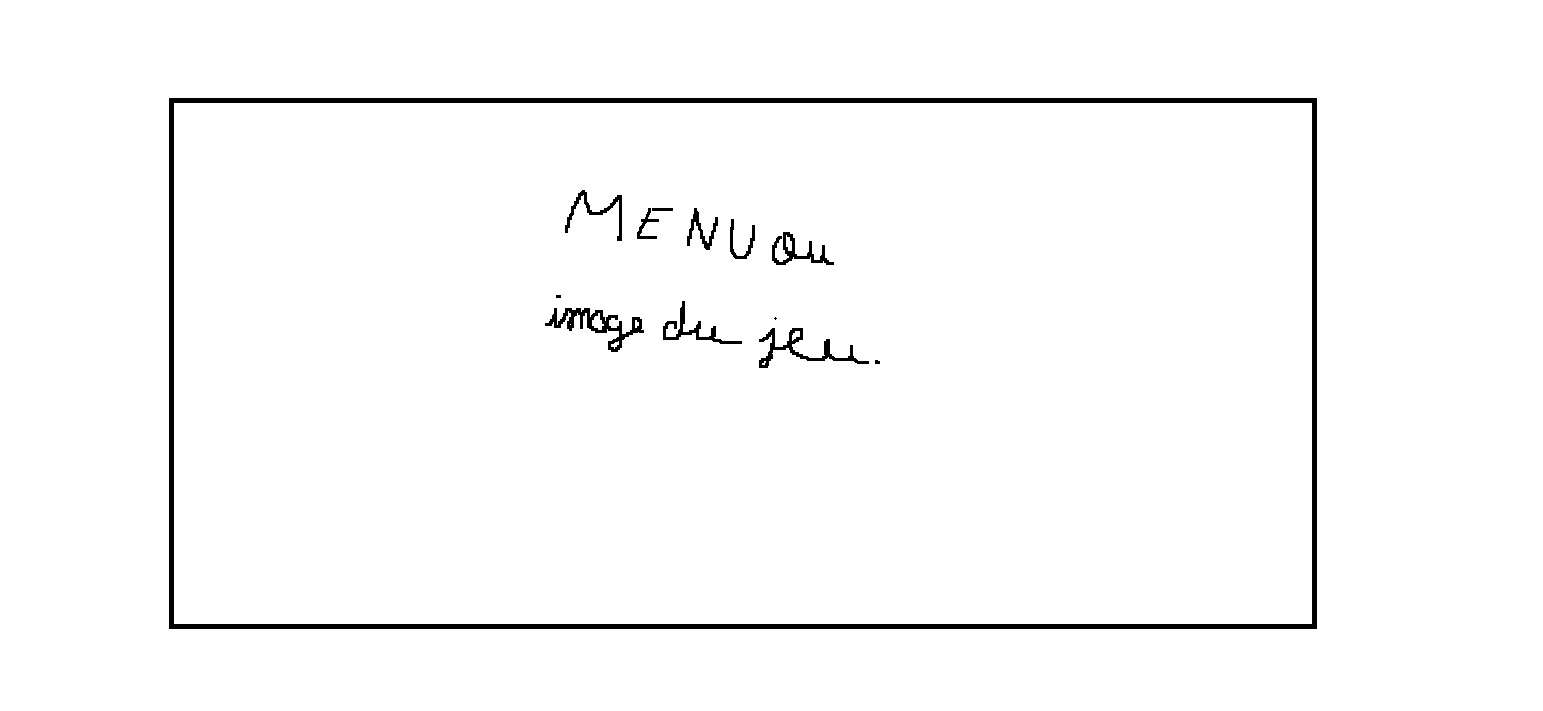 MENU ou
image du jeu.